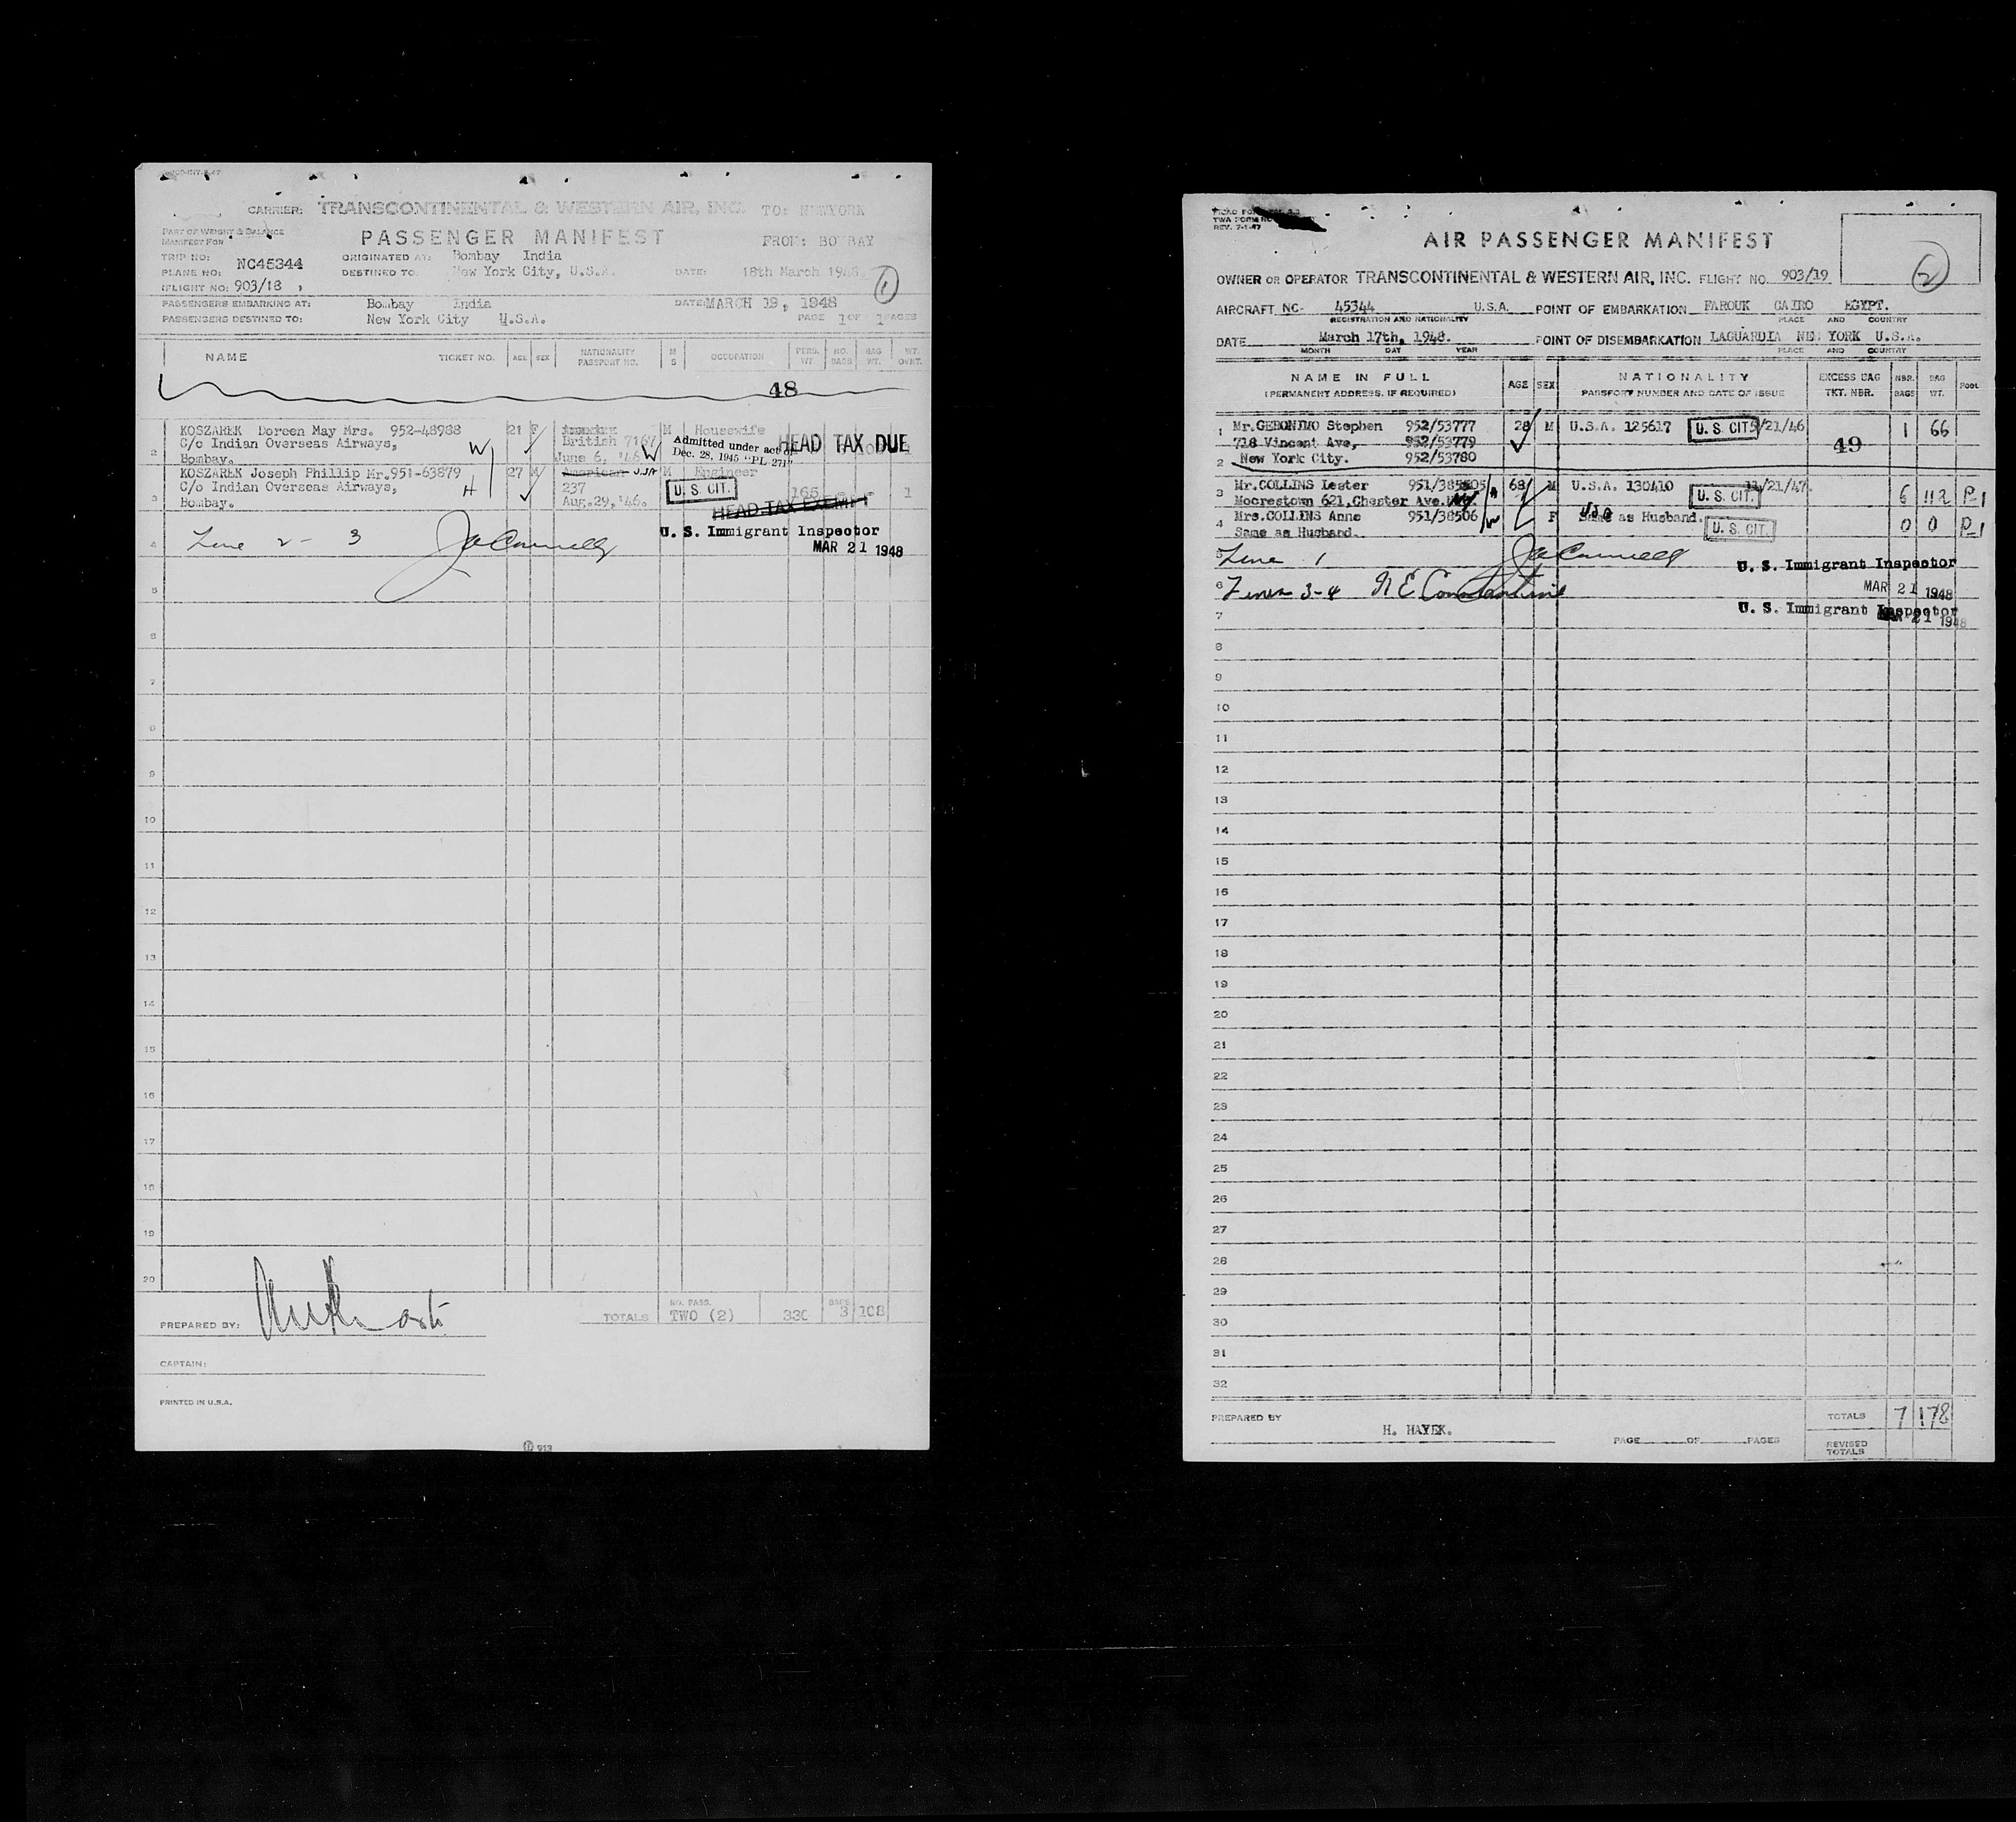 CARRIER: TRANSCONTINENTAL & WESTERN AIR, INC. TO: NEWYORK
PART OF WEIGHT & BALANCE
MANIFEST FOR
PASSENGER MANIFEST FROM: BOMBAY
TRIP NO:
PLANE NO: NC45344
ORIGINATED AT: Bombay India
DESTINED TO: New York City, U.S.A. DATE: 18th March 1948. 1
(FLIGHT NO: 903/18
PASSENGERS EMBARKING AT: Bombay India DATE: MARCH 19, 1948
PASSENGERS DESTINED TO: New York City U.S.A. PAGE 1 OF 1 PAGES
NAME TICKET NO. AGE SEX NATIONALITY PASSPORT NO. M S OCCUPATION PERS. WT. NO. BAGS BAG WT. WT. OVWT.
48
KOSZAREK Doreen May Mrs. 952-48988 21 F M Housewife
C/o Indian Overseas Airways, W British 7167
2 Bombay. June 6, '46 W
Admitted under act of
Dec. 28, 1945 "PL-271"
HEAD TAX DUE
KOSZAREK Joseph Phillip Mr. 951-63879 27 M American USA M Engineer
C/o Indian Overseas Airways, H 237 U. S. CIT. 165 1
3 Bombay. Aug.29, '46.
HEAD TAX EXEMPT
U. S. Immigrant Inspector
MAR 21 1948
4 Line 2 - 3
5
6
7
8
9
10
11
12
13
14
15
16
17
18
19
20
PREPARED BY:
TOTALS NO. PASS. TWO (2) 330 BAGS 3 108
CAPTAIN:
PRINTED IN U.S.A.
913
TWA FORM
REV. 7-1-47
AIR PASSENGER MANIFEST
2
OWNER OR OPERATOR TRANSCONTINENTAL & WESTERN AIR, INC. FLIGHT NO. 903/19
AIRCRAFT NC- 45344 U.S.A. POINT OF EMBARKATION FAROUK CAIRO EGYPT.
REGISTRATION AND NATIONALITY PLACE AND COUNTRY
DATE March 17th, 1948. POINT OF DISEMBARKATION LAGUARDIA NEW YORK U.S.A.
MONTH DAY YEAR PLACE AND COUNTRY
NAME IN FULL AGE SEX NATIONALITY EXCESS BAG NBR. BAG Pool
(PERMANENT ADDRESS, IF REQUIRED) PASSPORT NUMBER AND DATE OF ISSUE TKT. NBR. BAGS WT.
1 Mr.GERONIMO Stephen 952/53777 28 M U.S.A. 125617 U. S. CIT. /21/46 1 66
718 Vincent Ave, 952/53779 49
2 New York City. 952/53780
3 Mr.COLLINS Lester 951/38505 H 68 M U.S.A. 130410 U. S. CIT. 11/21/47. 6 112 P-1
Moorestown 621, Chester Ave.
4 Mrs.COLLINS Anne 951/38506 W F USA Same as Husband. U. S. CIT. 0 0 P-1
Same as Husband.
5 Line 1
U. S. Immigrant Inspector
6 Lines 3-4 N E Constantine
MAR 21 1948
7 U. S. Immigrant Inspector
MAR 21 1948
8
9
10
11
12
13
14
15
16
17
18
19
20
21
22
23
24
25
26
27
28
29
30
31
32
PREPARED BY H. HAYEK. PAGE OF PAGES
TOTALS 7 178
REVISED TOTALS